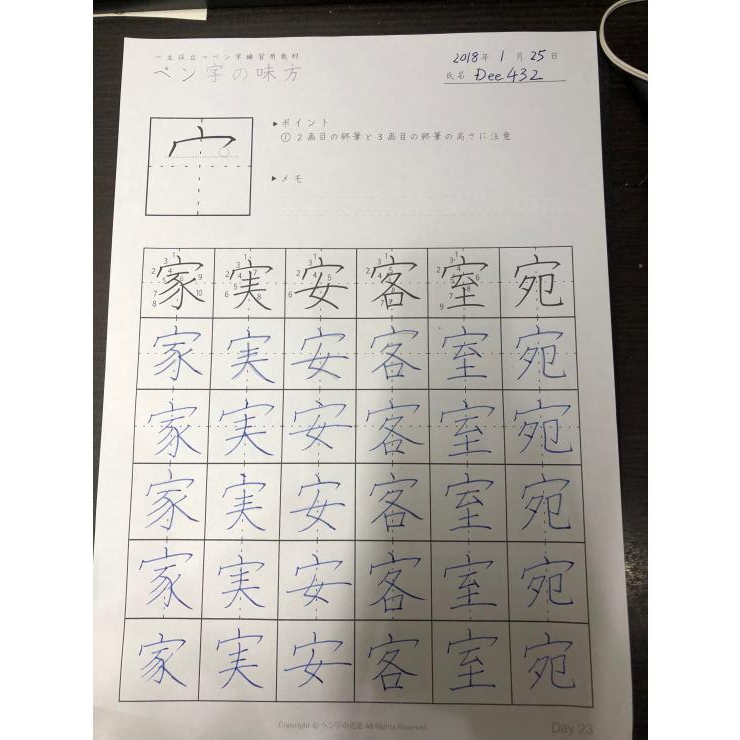 一生役立つペン字練習用教材
ペン字の味方
2018年 1月 25日
氏名 Dee432
▶ポイント
① 2画目の終筆と3画目の終筆の高さに注意
▶メモ
宀
家 実 安 客 室 宛
家 実 安 客 室 宛
家 実 安 客 室 宛
家 実 安 客 室 宛
家 実 安 客 室 宛
家 実 安 客 室 宛
Copyright © ペン字の味方 All Rights Reserved
Day 23